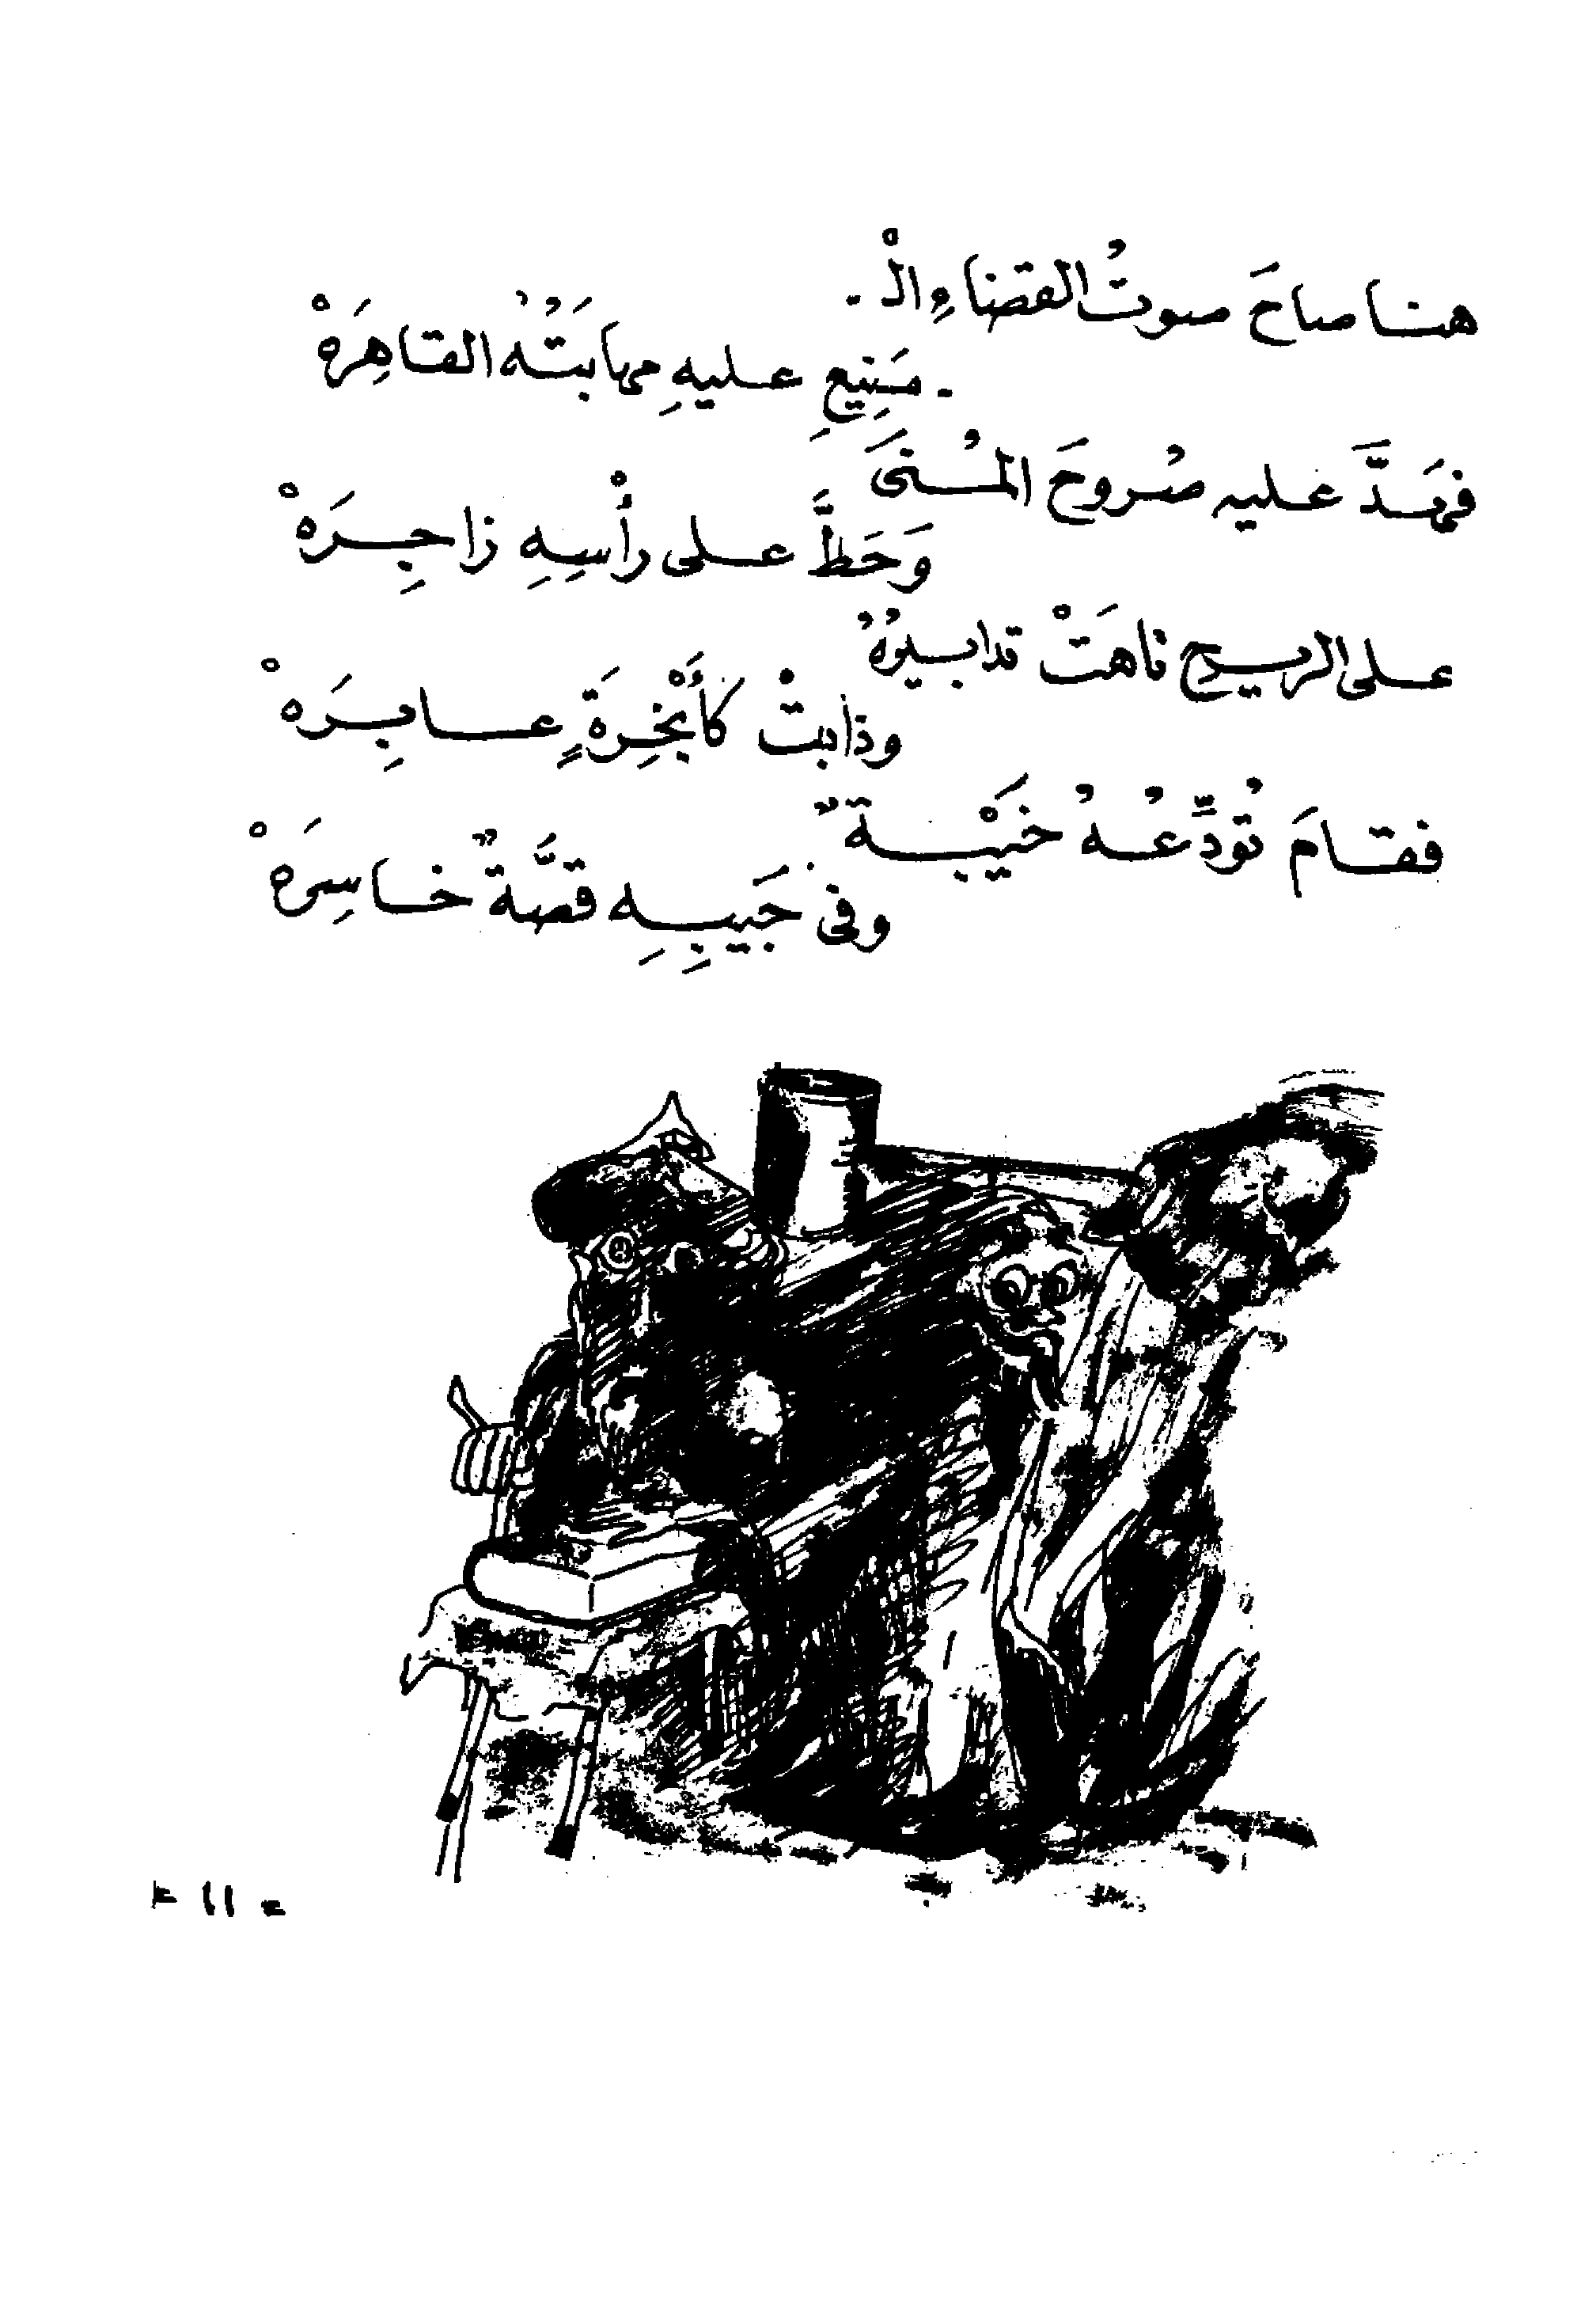 هنا صاحَ صوتُ القضاءِ الْـ -
- مَنِيعِ عليهِ مهابَتُهُ القاهِرَهْ
فهَدَّ عليه صُروحَ المُنَى
وَحَطَّ على رأْسِهِ زاجِرَهْ
على الريح تاهَتْ تدابيرُهُ
وذابتْ كأَبْخِرَةٍ عابِرَهْ
فقامَ تُودِّعُهُ خَيْبةٌ
وفى جَيبِهِ قصَّةٌ خاسِرَهْ
- ١١ -